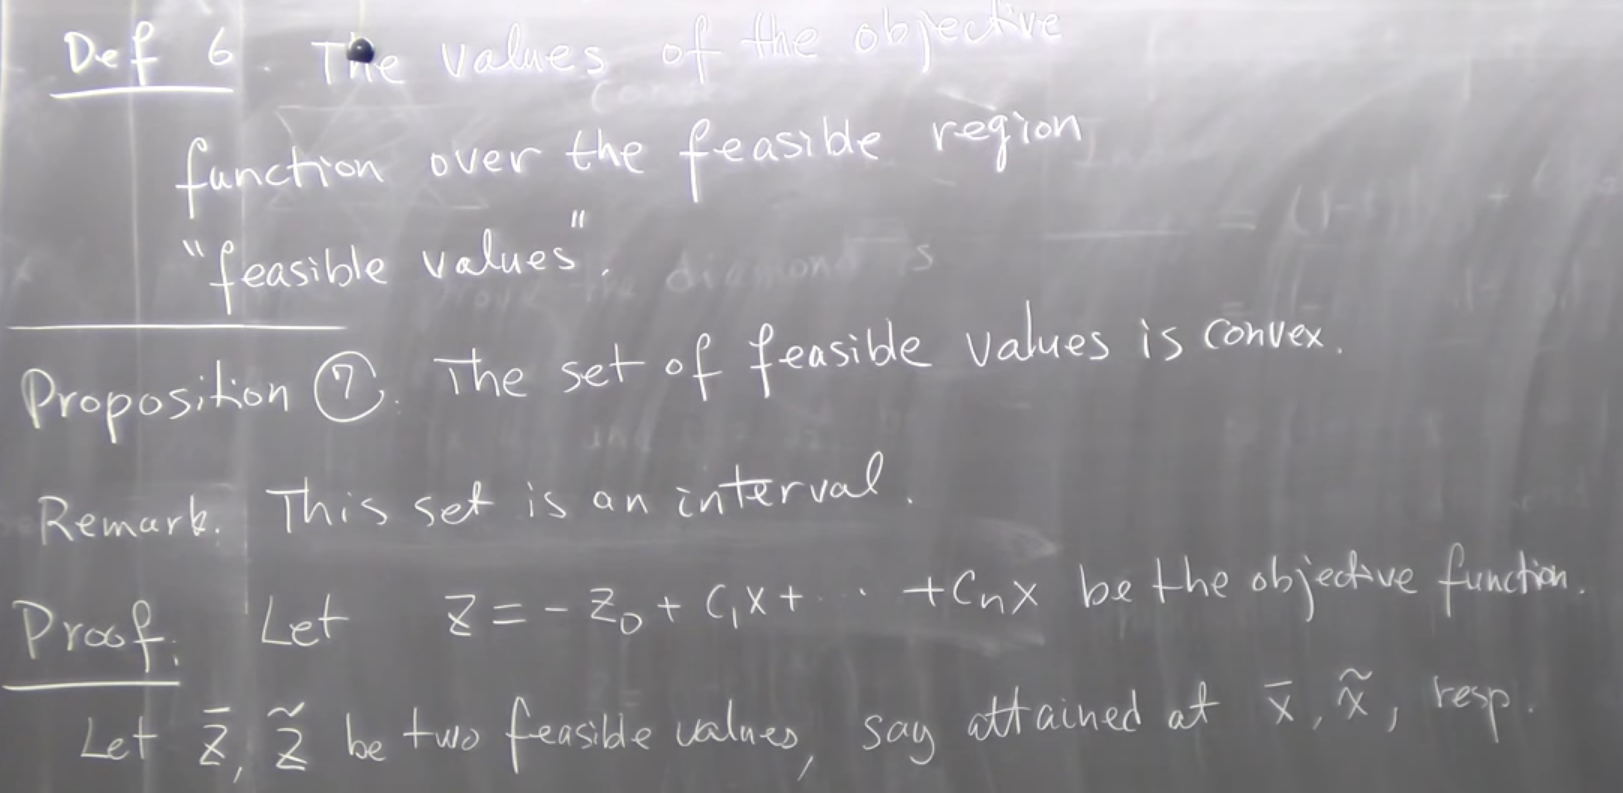 Def 6. The values of the objective
function over the feasible region
"feasible values".
Proposition ⑦. The set of feasible values is convex.
Remark. This set is an interval.
Proof. Let Z = - Z₀ + C₁X + ··· + CₙX be the objective function.
Let Z̄, Z̃ be two feasible values, say attained at x̄, x̃, resp.